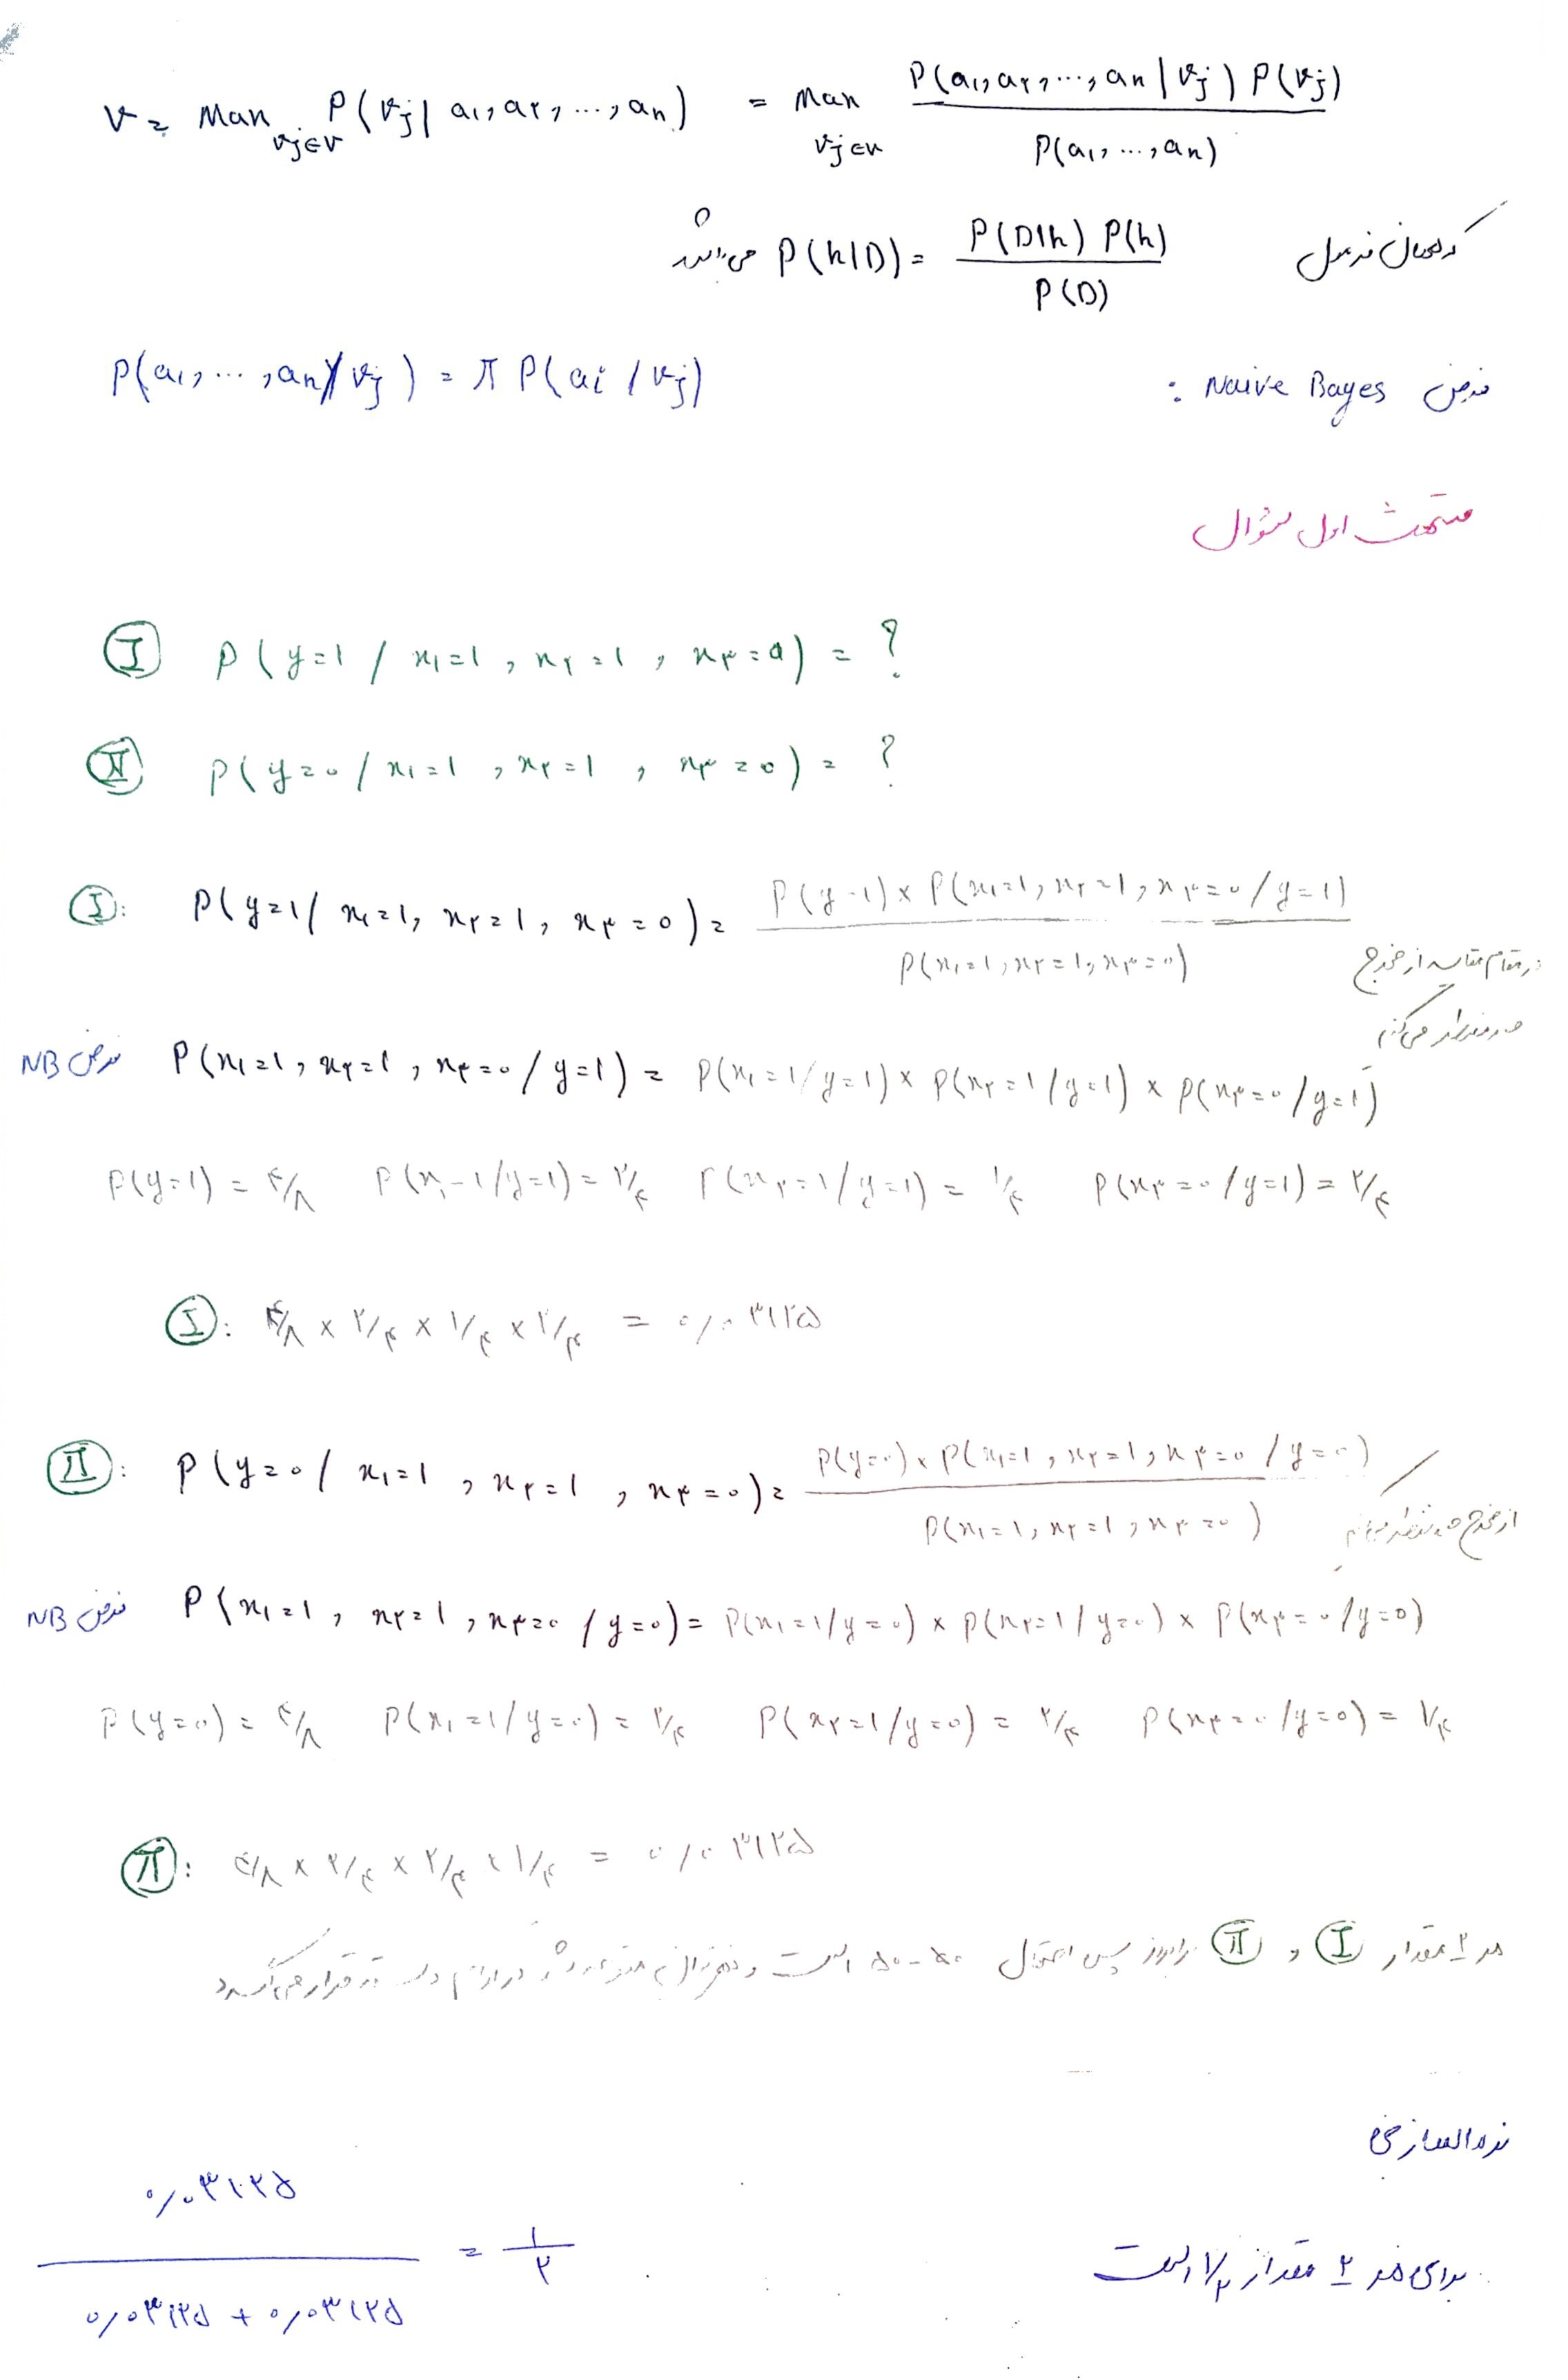 v = Max vj∈V P(vj | a۱, a۲, ..., an) = Max vj∈V P(a۱, a۲, ..., an | vj) P(vj) / P(a۱, ..., an)
P(h|D) = P(D|h) P(h) / P(D)
فرض Naive Bayes :
P(a۱, ..., an | vj) = π P(ai / vj)
قسمت اول سؤال
I P(y=1 / x۱=1, x۲=1, x۳=0) = ?
II P(y=0 / x۱=1, x۲=1, x۳=0) = ?
I: P(y=1 / x۱=1, x۲=1, x۳=0) = P(y=1) × P(x۱=1, x۲=1, x۳=0 / y=1) / P(x۱=1, x۲=1, x۳=0)
در مقام مقایسه از مخرج
صرفنظر می‌کنیم
فرض NB P(x۱=1, x۲=1, x۳=0 / y=1) = P(x۱=1 / y=1) × P(x۲=1 / y=1) × P(x۳=0 / y=1)
P(y=1) = ۴/۸ P(x۱=1 / y=1) = ۲/۴ P(x۲=1 / y=1) = ۱/۴ P(x۳=0 / y=1) = ۲/۴
I: ۴/۸ × ۲/۴ × ۱/۴ × ۲/۴ = ۰/۰۳۱۲۵
II: P(y=0 / x۱=1, x۲=1, x۳=0) = P(y=0) × P(x۱=1, x۲=1, x۳=0 / y=0) / P(x۱=1, x۲=1, x۳=0)
از مخرج صرفنظر
فرض NB P(x۱=1, x۲=1, x۳=0 / y=0) = P(x۱=1 / y=0) × P(x۲=1 / y=0) × P(x۳=0 / y=0)
P(y=0) = ۴/۸ P(x۱=1 / y=0) = ۲/۴ P(x۲=1 / y=0) = ۲/۴ P(x۳=0 / y=0) = ۱/۴
II: ۴/۸ × ۲/۴ × ۲/۴ × ۱/۴ = ۰/۰۳۱۲۵
هر ۲ مقدار I و II برابرند پس احتمال ۵۰-۵۰ است و
نرمالسازی
۰/۰۳۱۲۵ / ۰/۰۳۱۲۵ + ۰/۰۳۱۲۵ = ۱/۲
برای هر ۲ مقدار ۱/۲ است